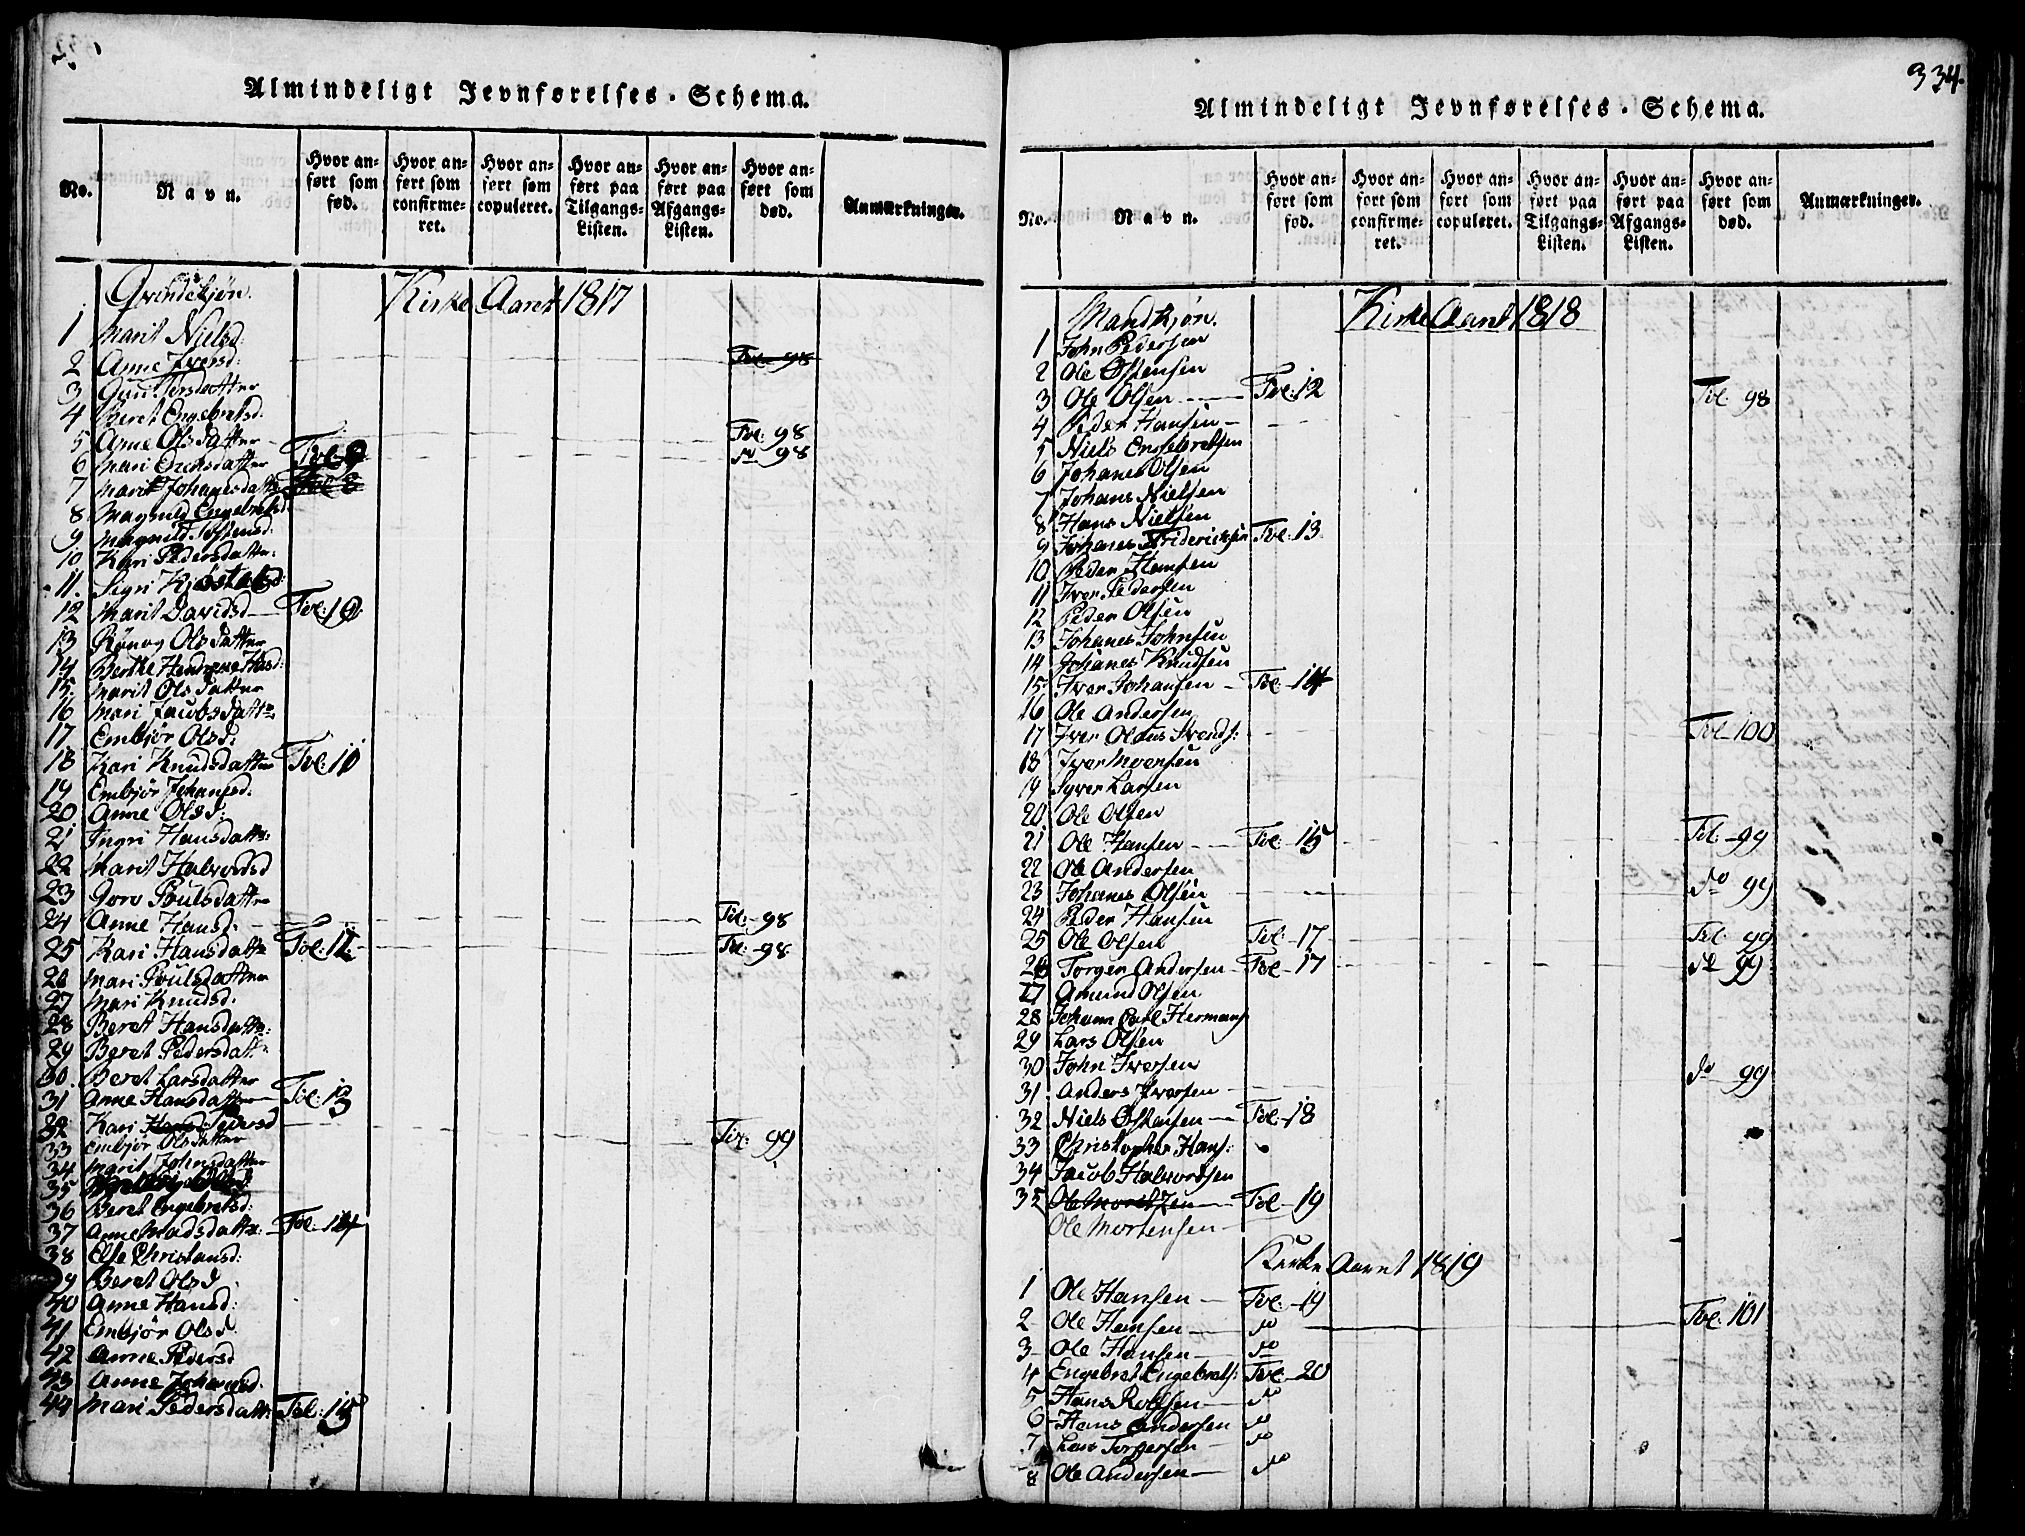 Almindeligt Jevnførelses-Schema.
No. Navn. Hvor anført som fød. Hvor anført som confirmeret. Hvor anført som copuleret. Hvor anført paa Tilgangs-Listen. Hvor anført paa Afgangs-Listen. Hvor anført som død. Anmærkninger.
Qvindekjøn. Kirke Aaret 1817
1 Marit Nielsd:
2 Anne Iversd: Fol 98
3 Gun Persdatter
4 Beret Engebretsd:
5 Anne Olsdatter Fol: 98
6 Mari Erichsdatter Fol 9 do 98
7 Marit Johanesdatter Fol 8
8 Magnild Engebretsd
9 Magnild Tostensd:
10 Kari Pedersdatter
11. Sigri
12 Marit Davidsd Fol: 10
13 Rønog Olsdatter
14 Berthe
15. Marit Olsdatter
16 Mari Jacobsdatter
17 Embjør Olsd:
18 Kari Knudsdatter Fol: 11
19 Embjør Johansd:
20 Anne Olsd:
21 Ingri Hansdatter
22 Marit Halvordsd
23 Goro Poulsdatter
24 Anne Hansd: Fol: 98
25 Kari Hansdatter Fol: 12 Fol: 98
26 Mari Poulsdatter
27 Mari Knudsd.
28 Beret Hansdatter
29 Beret Pedersdatter
30. Beret Larsdatter
31 Anne Hansdatter Fol: 13
32 Kari Pedersd Fol: 99
33 Embjør Olsdatter
34 Marit Johnsdatter
35
36 Beret Engebretsd:
37 Anne Madsdatter Fol: 14
38 Else Christansd:
39 Beret Olsd
40 Anne Hansd:
41 Embjør Olsd.
42 Anne Pedersd
43 Anne Johansd.
44 Mari Pedersdatt: Fol: 15
334.
Almindeligt Jevnførelses-Schema.
No. Navn. Hvor anført som fød. Hvor anført som confirmeret. Hvor anført som copuleret. Hvor anført paa Tilgangs-Listen. Hvor anført paa Afgangs-Listen. Hvor anført som død. Anmærkninger.
Mandkjøn. Kirke Aaret 1818
1 John Pedersen
2 Ole Østensen
3 Ole Olsen Fol: 12 Fol: 98
4 Peder Hansen
5 Niels Engebretsen
6 Johanes Olsen
7 Johans Nielsen
8 Hans Nielsen
9 Johanes Friderichsen Fol: 13
10 Peder Hansen
11 Iver Pedersen
12 Peder Olsen
13 Johanes Johnsen
14 Johanes Knudsen
15 Iver Johansen Fol: 14
16 Ole Andersen
17 Iver Olaus Svends: Fol 100
18 Iver Iversen
19 Syver Larsen
20 Ole Olsen
21 Ole Hansen Fol: 15 Fol: 99
22 Ole Andersen
23 Johanes Olsen do 99
24 Peder Hansen
25 Ole Olsen Fol: 17 Fol 99
26 Torger Andersen Fol 17 do 99
27 Amund Olsen
28 Johann Carl Hermans
29 Lars Olsen
30 John Iversen
31 Anders Iversen do 99
32 Niels Østensen Fol: 18
33 Christopher Hans:
34 Jacob Halvordsen
35 Ole Mortensen Fol 19
Ole Mortensen
Kirke Aaret 1819
1 Ole Hansen Fol: 19
2 Ole Hansen do Fol: 101
3 Ole Hansen do
4 Engebret Engebrets: Fol: 20
5 Hans Rolfsen do
6 Hans Andersen do
7 Lars Torgersen do
8 Ole Andersen do